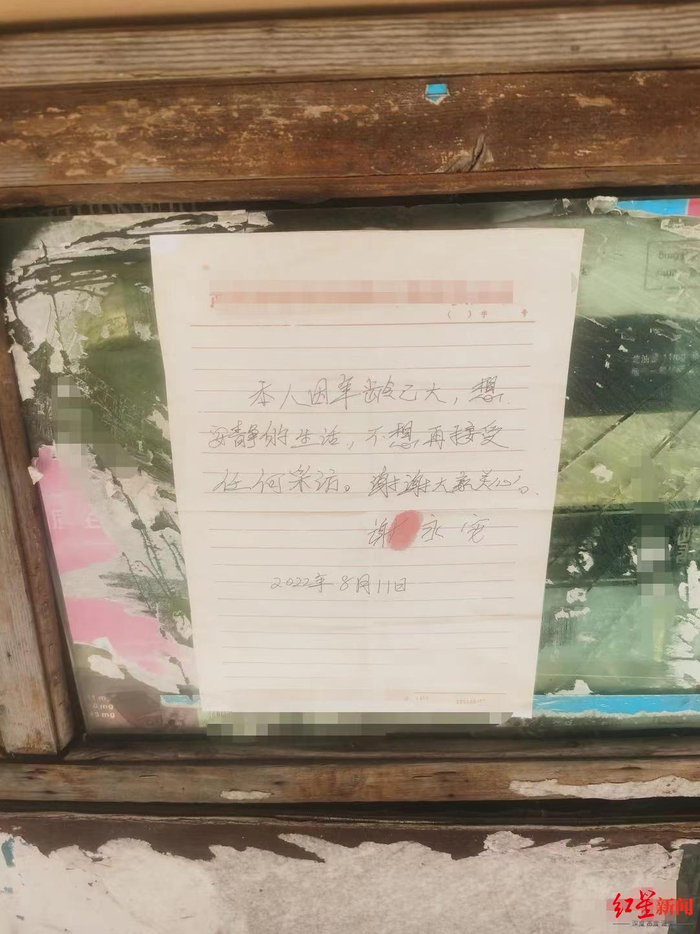 ( ) 字 号
本人因年龄已大，想
安静的生活，不想再接受
任何采访。谢谢大家关心。
谢永宽
2022年8月11日
mg
mg
mg
红星新闻